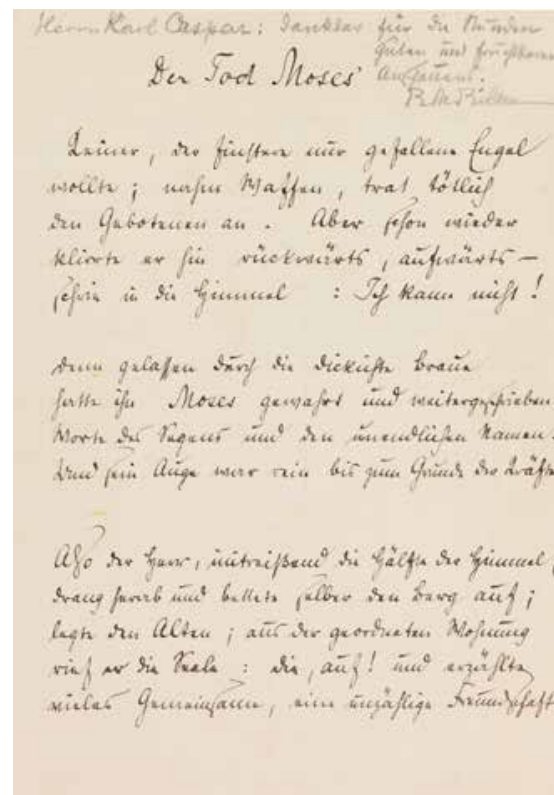 Herrn Karl Caspar: dankbar für die Stunden
guten und fruchtbaren
Anschauens.
R M Rilke
Der Tod Moses
Keiner, der finstere nur gefallene Engel
wollte; nahm Waffen, trat tötlich
den Gebotenen an. Aber schon wieder
klirrte er hin rückwärts, aufwärts –
schrie in die Himmel : Ich kann nicht!
Denn gelassen durch die dickichte Braue
hatte ihn Moses gewahrt und weitergeschrieben:
Worte des Segens und den unendlichen Namen.
Und sein Auge war rein bis zum Grunde der Kräfte
Also der Herr, mitreißend die Hälfte der Himmel,
drang herab und bettete selber den Berg auf;
legte den Alten; aus der geordneten Wohnung
rief er die Seele : die, auf! und erzählte
vieles Gemeinsame, eine unzählige Freundschaft